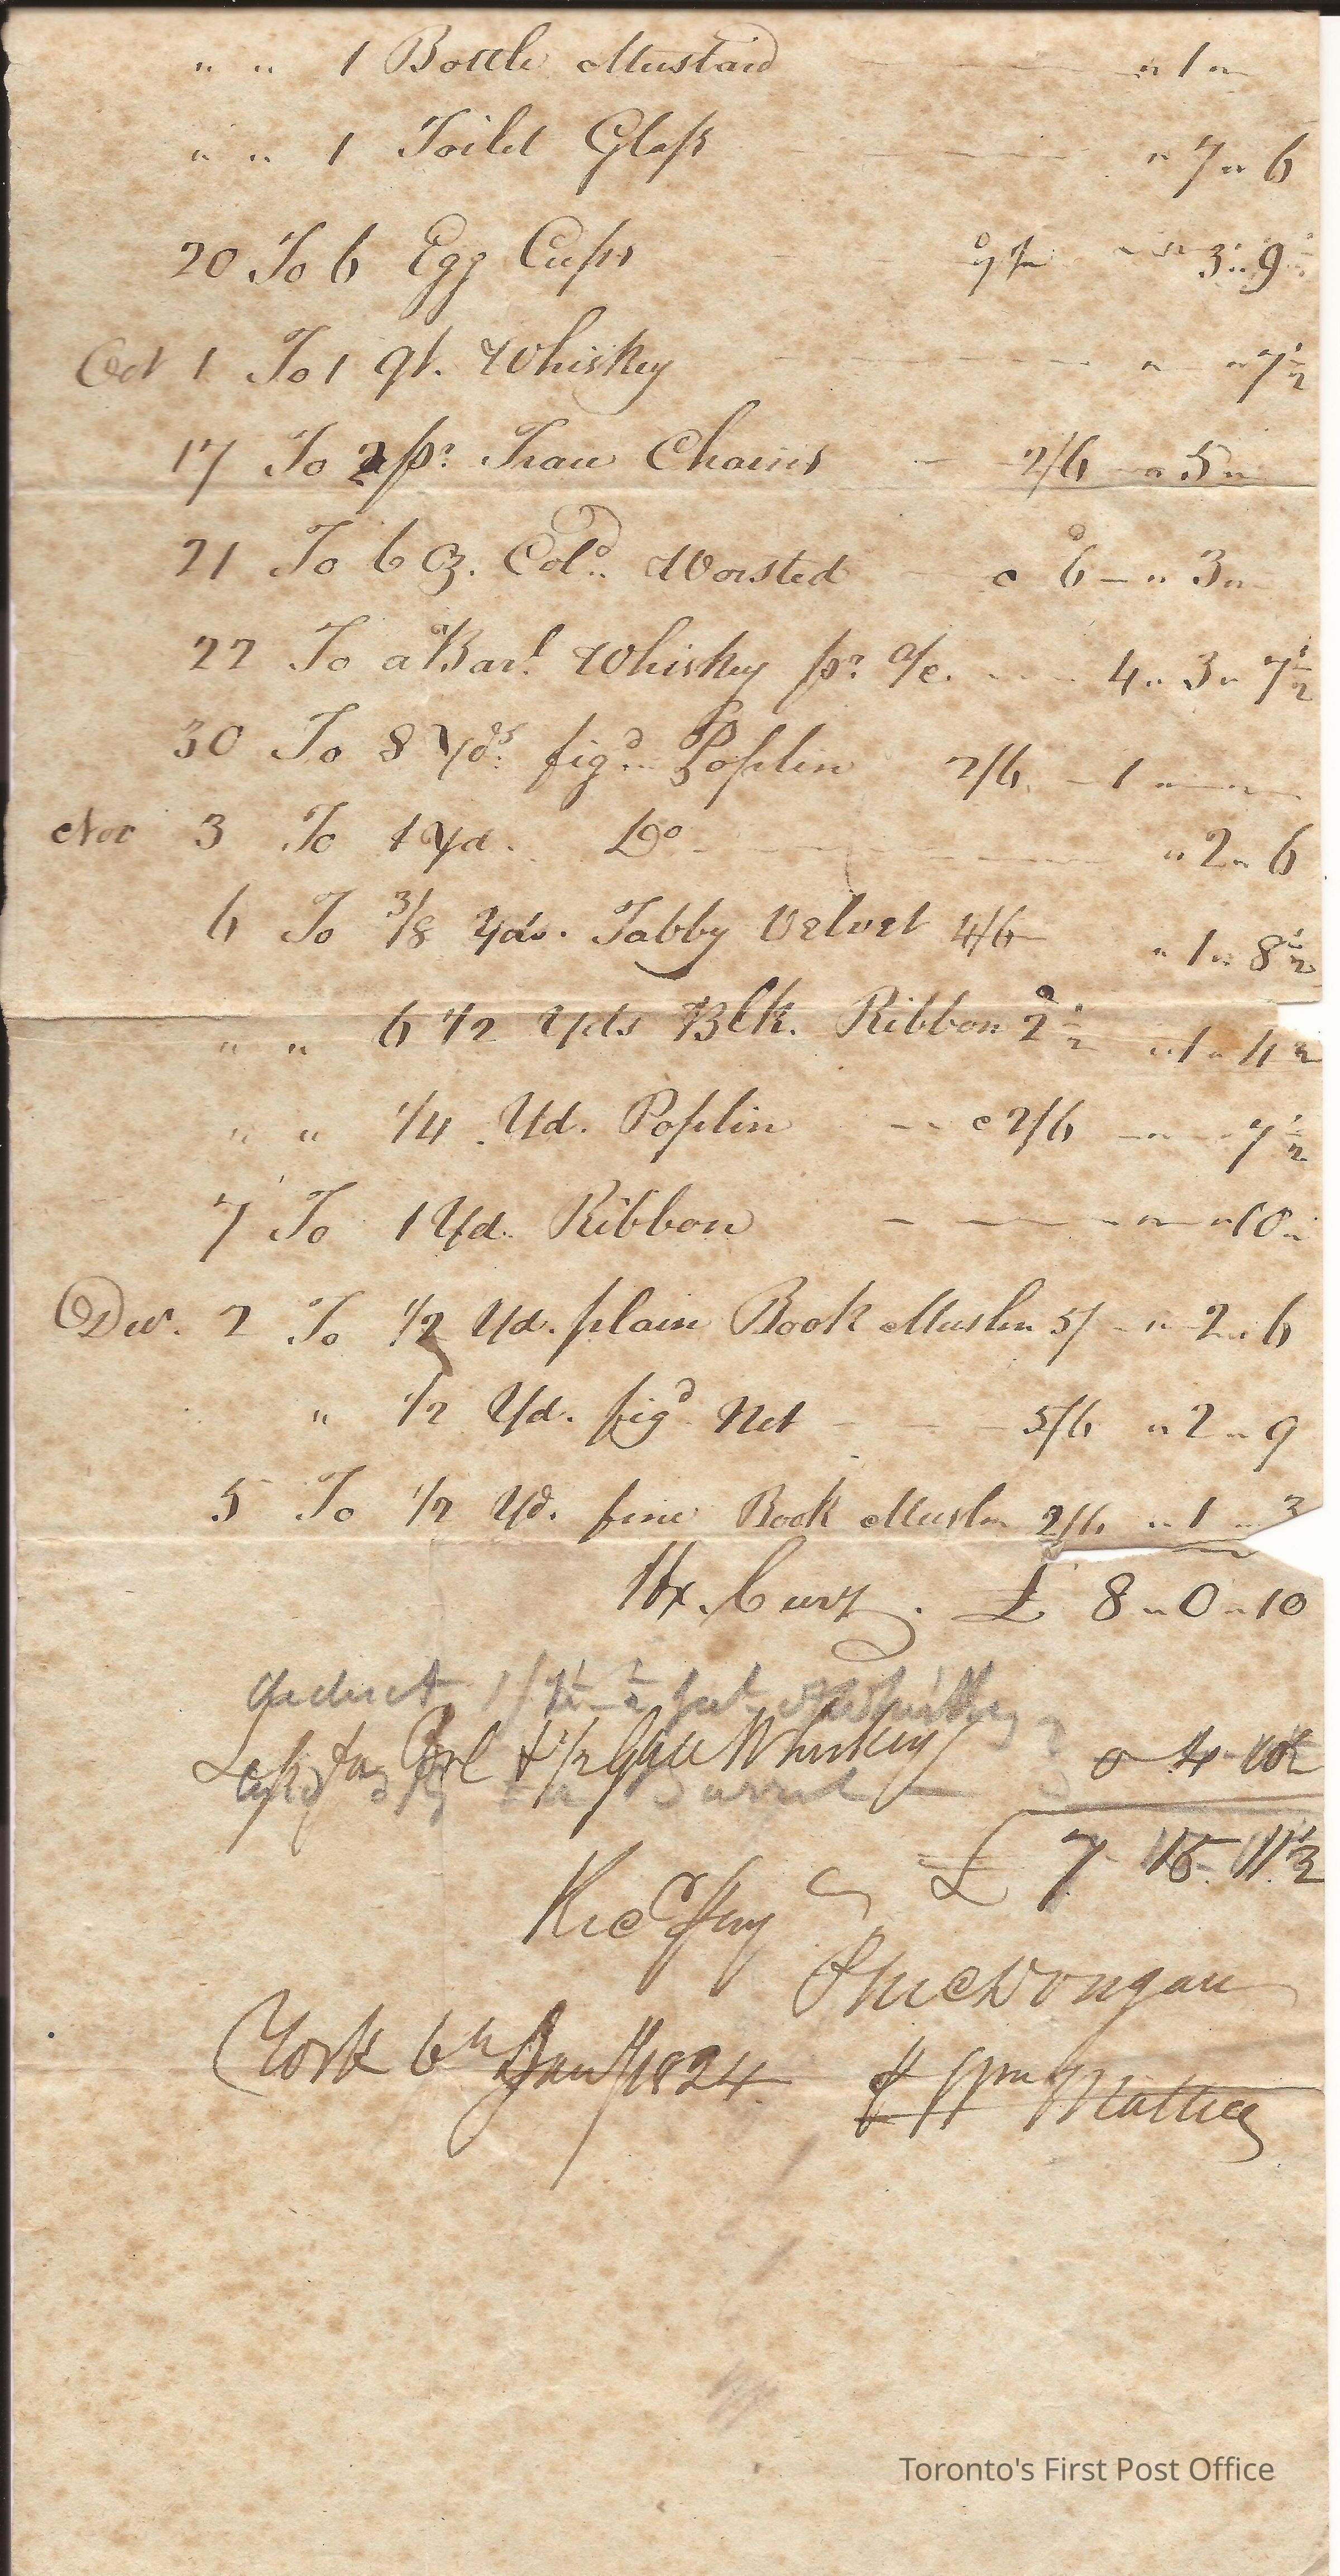 " " 1 Bottle Mustard " 1 "
" " 1 Toilet Glass " 7 " 6
20 To 6 Egg Cups 7½ " 3 " 9
Oct 1 To 1 qt. Whiskey " " 7½
17 To 2 pr. Trace Chains 2/6 " 5 "
21 To 6 oz. Cold. Worsted 6 " 3 "
22 To a Barl. Whiskey pr. a/c. 4 " 3 " 7½
30 To 8 Yds. figd. Poplin 2/6 1 " "
Nov 3 To 1 Yd. Do " 2 " 6
6 To 3/8 Yds. Tabby Velvet 4/6 " 1 " 8½
" " 6 1/2 Yds Blk. Ribbon 2½ " 1 " 4
" " 1/4 Yd. Poplin 2/6 " 7½
7 To 1 Yd. Ribbon " " 10
Dec. 2 To 1/2 Yd. plain Book Muslin 5/ " 2 " 6
" 1/2 Yd. figd Net 5/6 " 2 " 9
5 To 1/2 Yd. fine Book Muslin 2/6 " 1 " 3
Hx. Curry. £ 8 " 0 " 10
deduct
Less for Brl & 1/2 Gall Whiskey 0 4 10½
Barrel
£ 7 15 11½
Recd Pay
P McDougall
York 6th Jany 1824
Wm
Toronto's First Post Office